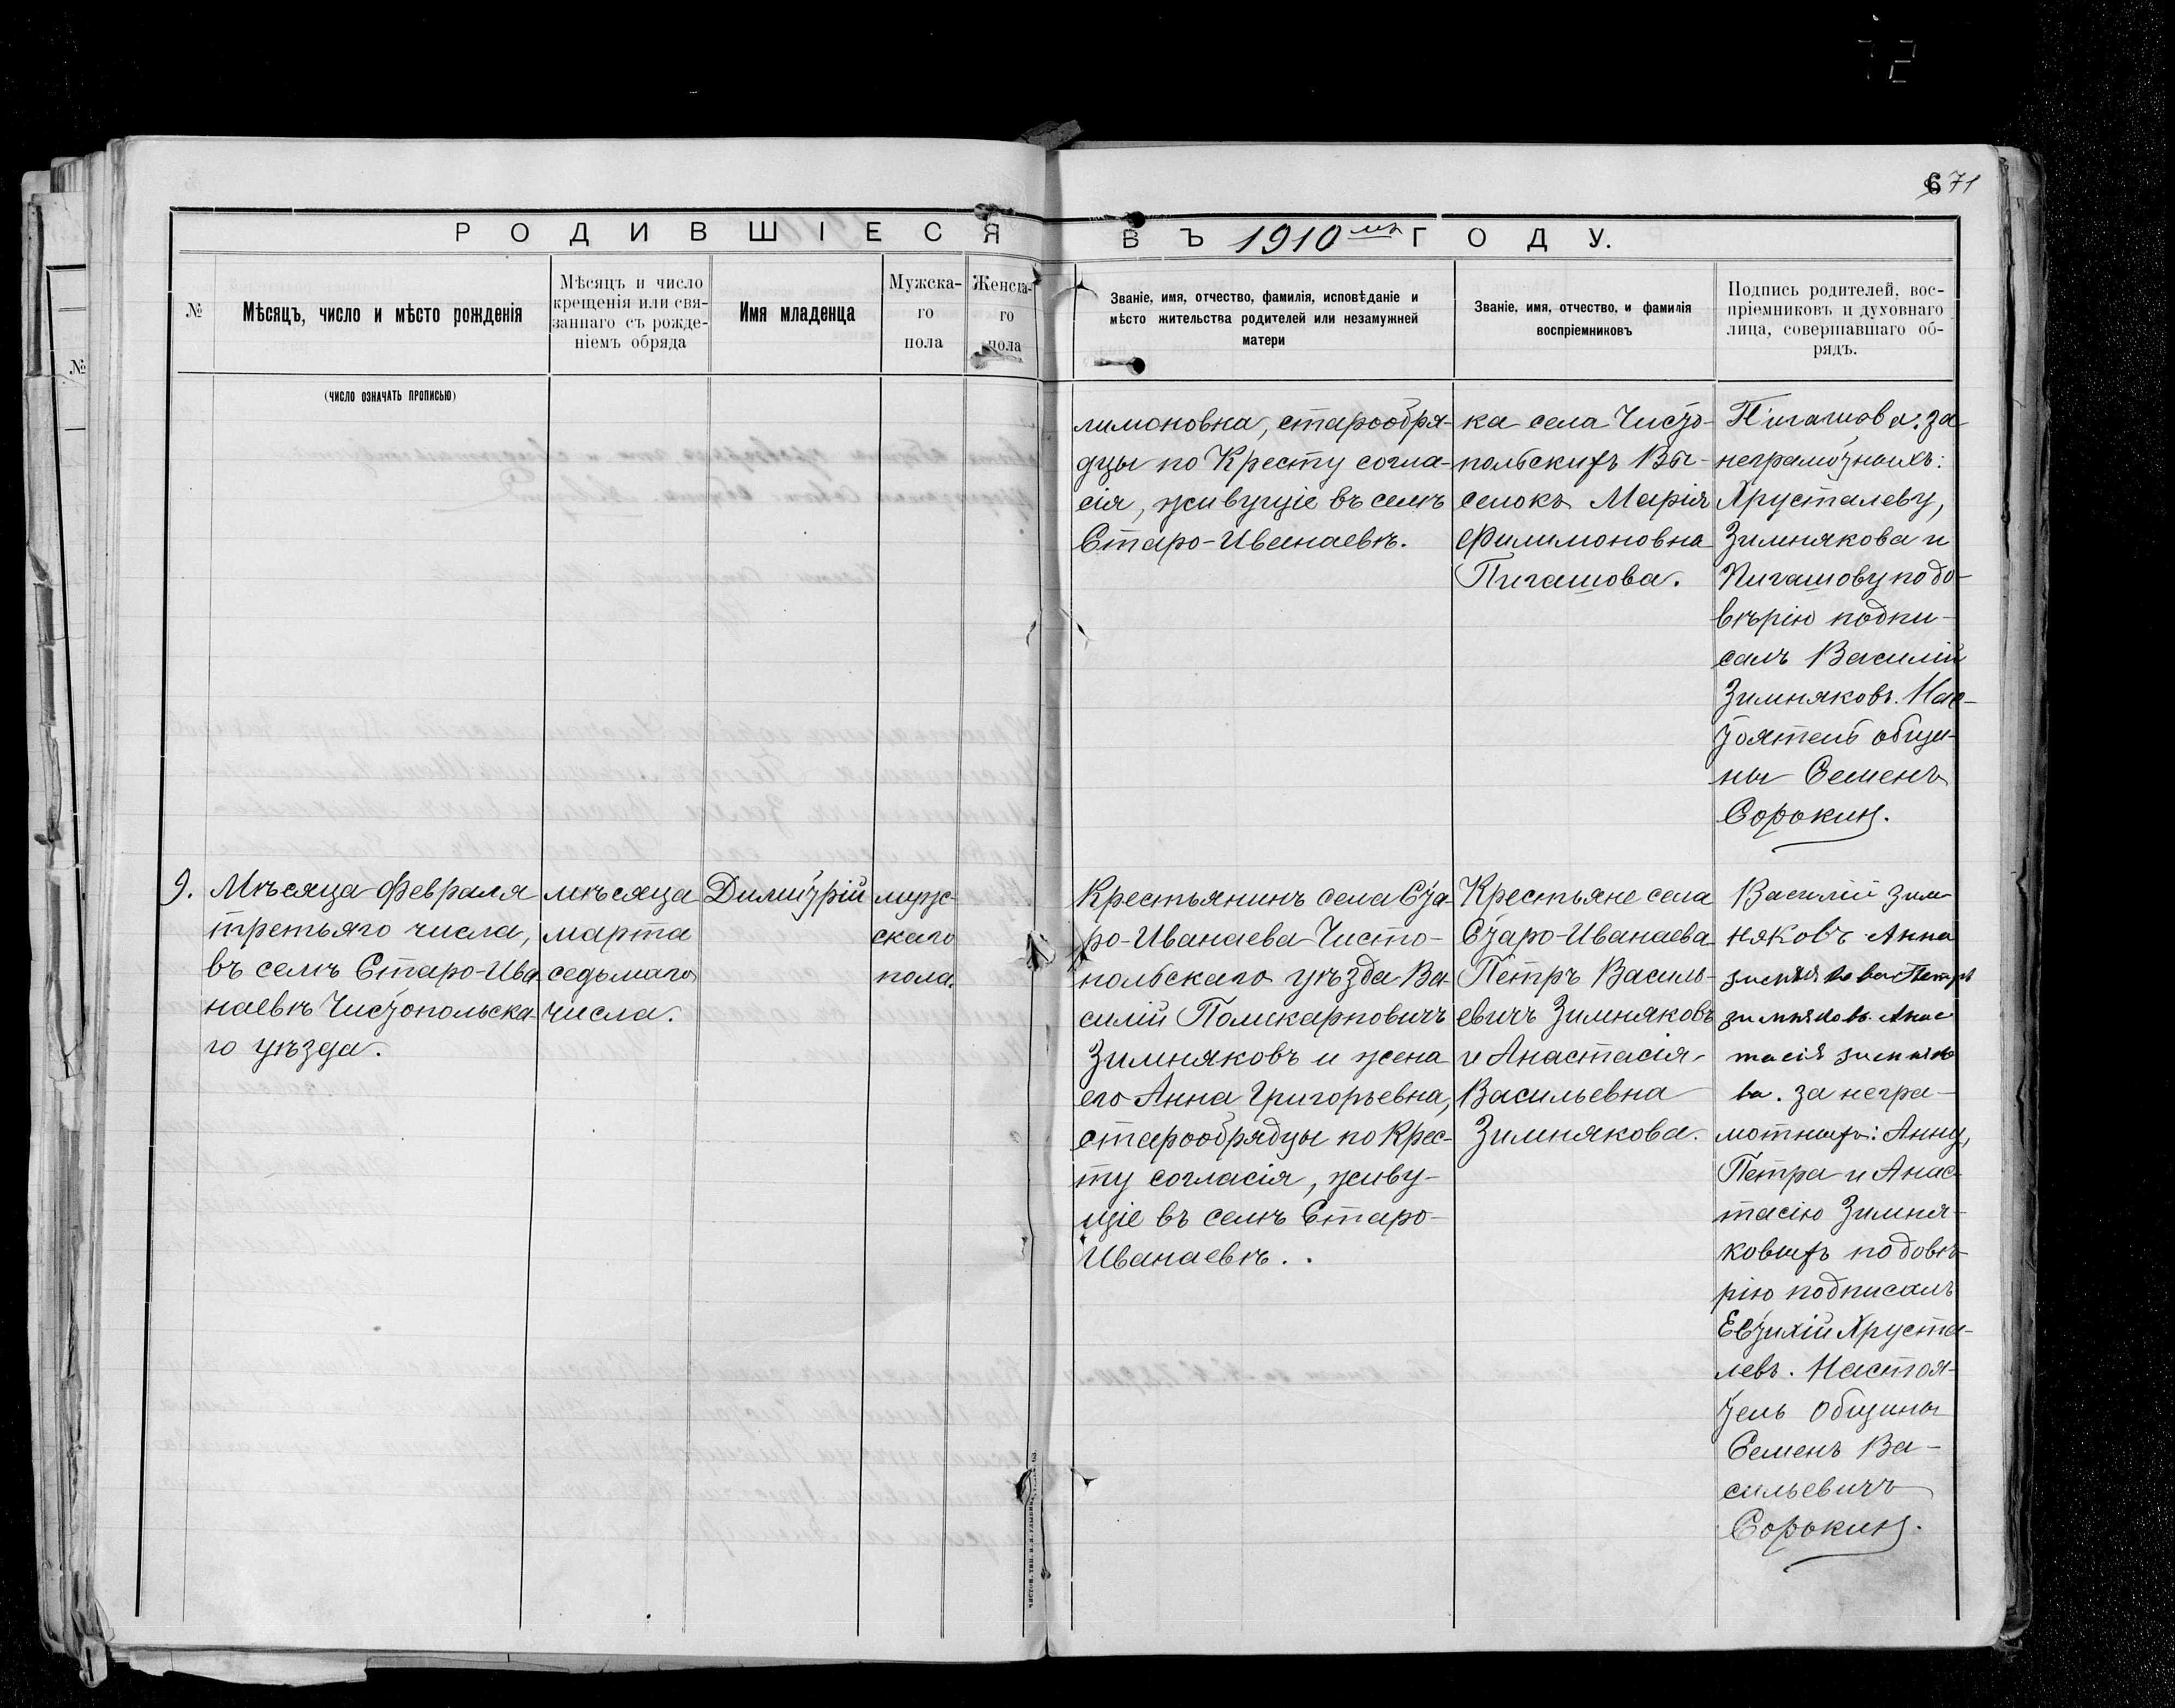 72
6 71
РОДИВШІЕСЯ
ВЪ 1910 мъ ГОДУ.
№
№
Мѣсяцъ, число и мѣсто рожденія
Мѣсяцъ и число
крещенія или свя-
заннаго съ рожде-
ніемъ обряда
Имя младенца
Мужска-
го
пола
Женска-
го
пола
Званіе, имя, отчество, фамилія, исповѣданіе и
мѣсто жительства родителей или незамужней
матери
Званіе, имя, отчество, и фамилія
воспріемниковъ
Подпись родителей, вос-
пріемниковъ и духовнаго
лица, совершавшаго об-
рядъ.
(число означать прописью)
лимоновна, старообря-
дцы по Кресту согла-
сія, живущіе въ селѣ
Старо-Иванаевѣ.
ка села Чисто-
польскихъ Вы-
селокъ Марія
Филимоновна
Пигашова.
Пигашова: за
неграмотныхъ:
Хрусталеву,
Зимнякова и
Пигашову по до-
вѣрію подпи-
салъ Василій
Зимняковъ. Нас-
тоятель общи-
ны Семенъ
Сорокинъ.
9.
Мѣсяца Февраля
третьяго числа,
въ селѣ Старо-Ива-
наевѣ Чистопольска-
го уѣзда.
мѣсяца
марта
седьмаго
числа.
Димитрій
муж-
скаго
пола.
Крестьянинъ села Ста-
ро-Иванаева Чисто-
польскаго уѣзда Ва-
силій Поликарповичъ
Зимняковъ и жена
его Анна Григорьевна,
старообрядцы по Крес-
ту согласія, живу-
щіе въ селѣ Старо-
Иванаевѣ..
Крестьяне села
Старо-Иванаева
Петръ Василь-
евичъ Зимняковъ
и Анастасія
Васильевна
Зимнякова.
Василій Зим
няковъ Анна
зимнякова Петръ
зимняковъ. Анас
тасія зимняко
ва. за негра-
мотныхъ: Анну,
Петра и Анас-
тасію Зимня-
ковыхъ по довѣ-
рію подписалъ
Евтихій Хруста-
левъ. Настоя-
тель Общины
Семенъ Ва-
сильевичъ
Сорокинъ.